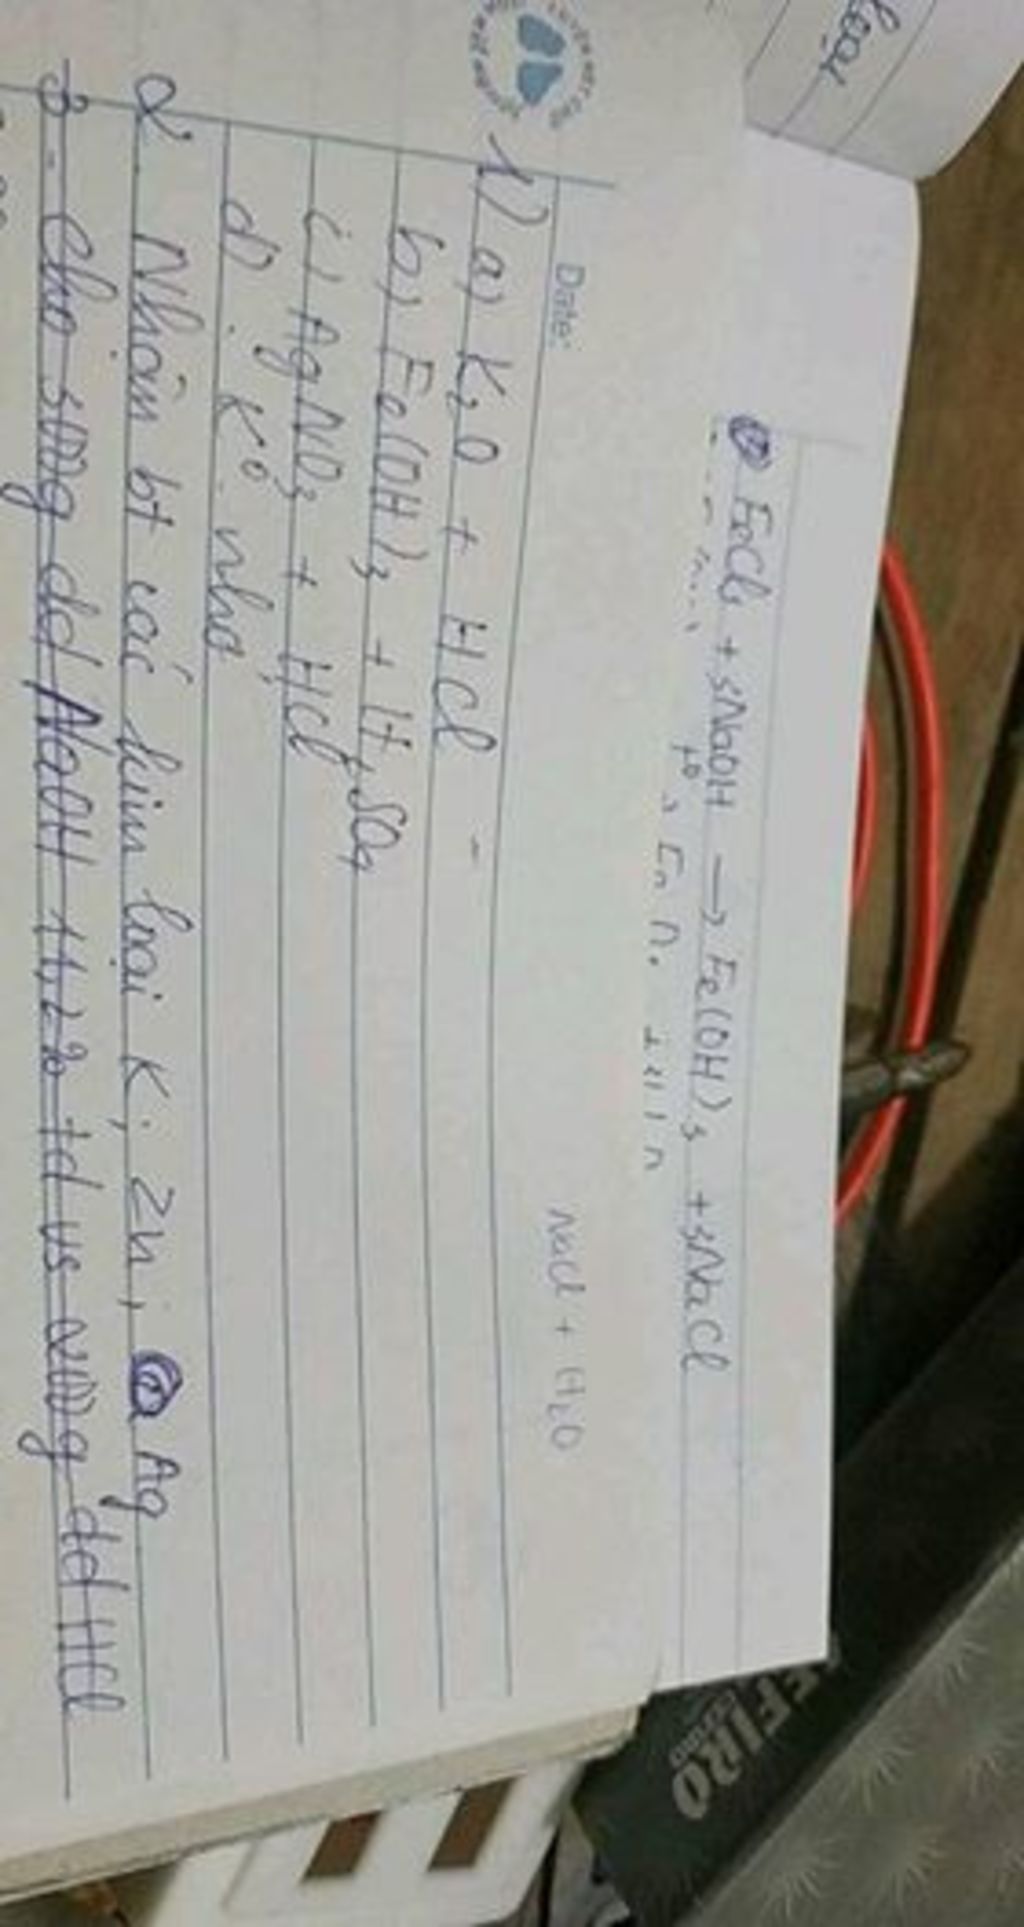 loại
FeCl3 + 3NaOH → Fe(OH)3 + 3NaCl
t°
NaCl + H2O
Date:
1) a) K2O + HCl -
b) Fe(OH)3 + H2SO4
c) AgNO3 + HCl
d)
2. Nhận bt các kim loại K, Zn, Ag
3. Cho 300g dd NaOH td vs 200g dd HCl
EFIRO